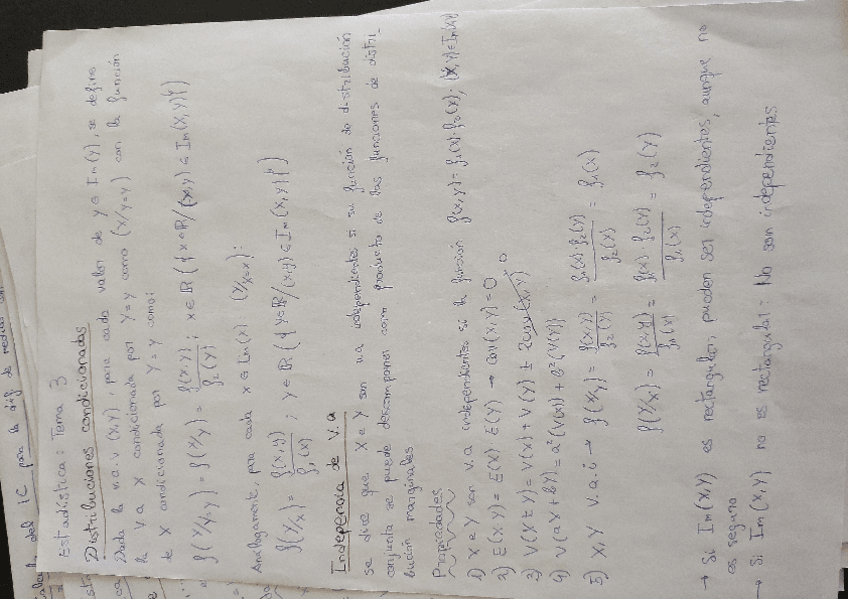 Estadística: Tema 3
Distribuciones condicionadas
Dada la v.a.v (X,Y), para cada valor de y ∈ Im(Y), se define
la va X condicionada por Y=y como (X/Y=y) con la función
de X condicionada por Y=y como:
f(X/Y=y) = f(X/y) = f(x,y)/f₂(y) ; x ∈ ℝ ({x∈ℝ/(x,y) ∈ Im(X,Y)})
Análogamente, para cada x ∈ Im(X) (Y/X=x):
f(Y/x) = f(x,y)/f₁(x) ; y ∈ ℝ ({y∈ℝ/(x,y) ∈ Im(X,Y)})
Independencia de V.a
se dice que X e Y son va independientes si su función de distribución
conjunta se puede descomponer como producto de las funciones de distri-
bución marginales
Propiedades
1) X e Y son v.a independientes si la función f(x,y) = f₁(x)·f₂(y); (x,y)∈Im(X,Y)
2) E(X·Y) = E(X)·E(Y) → Cov(X,Y)=0
3) V(X±Y) = V(X) + V(Y) ± 2cov(X,Y) 0
4) V(aX+bY) = a²(V(X)) + b²(V(Y))
5) X,Y v.a.i → f(X/y) = f(x,y)/f₂(y) = f₁(x)·f₂(y)/f₂(y) = f₁(x)
f(Y/x) = f(x,y)/f₁(x) = f₁(x)·f₂(y)/f₁(x) = f₂(y)
→ Si Im(X,Y) es rectangular, pueden ser independientes, aunque no
es seguro
→ Si Im(X,Y) no es rectangular: No son independientes